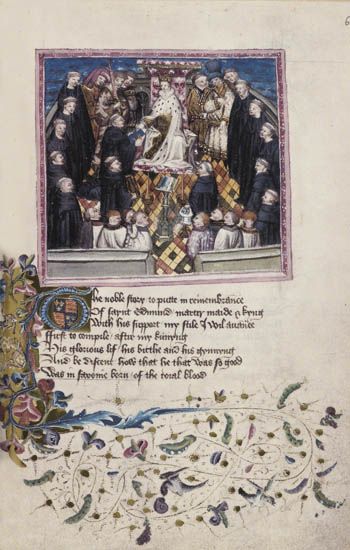 6
The noble story to putte in remembrance
Of saynt Edmund martir maide & kyng
With his support my stile I wil auaunce
ffirst to compile after my kunnyng
His glorious lif his birthe and his gynnyng
And be discent how that he that was so good
Was in saxonie born of the roial blood